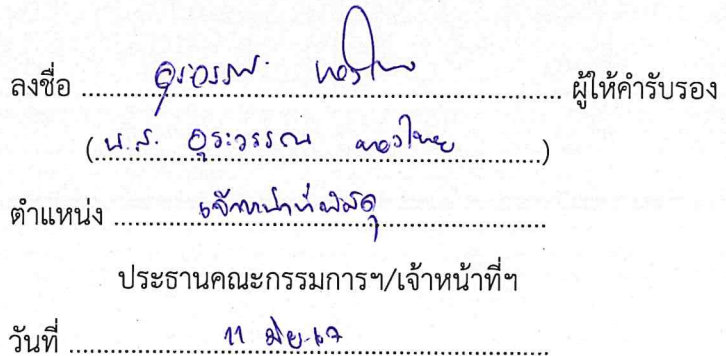 ลงชื่อ อุระวรรณ ทองไทย ผู้ให้คำรับรอง
(น.ส. อุระวรรณ ทองไทย)
ตำแหน่ง เจ้าหน้าที่พัสดุ
ประธานคณะกรรมการฯ/เจ้าหน้าที่ฯ
วันที่ 11 มิย. 67